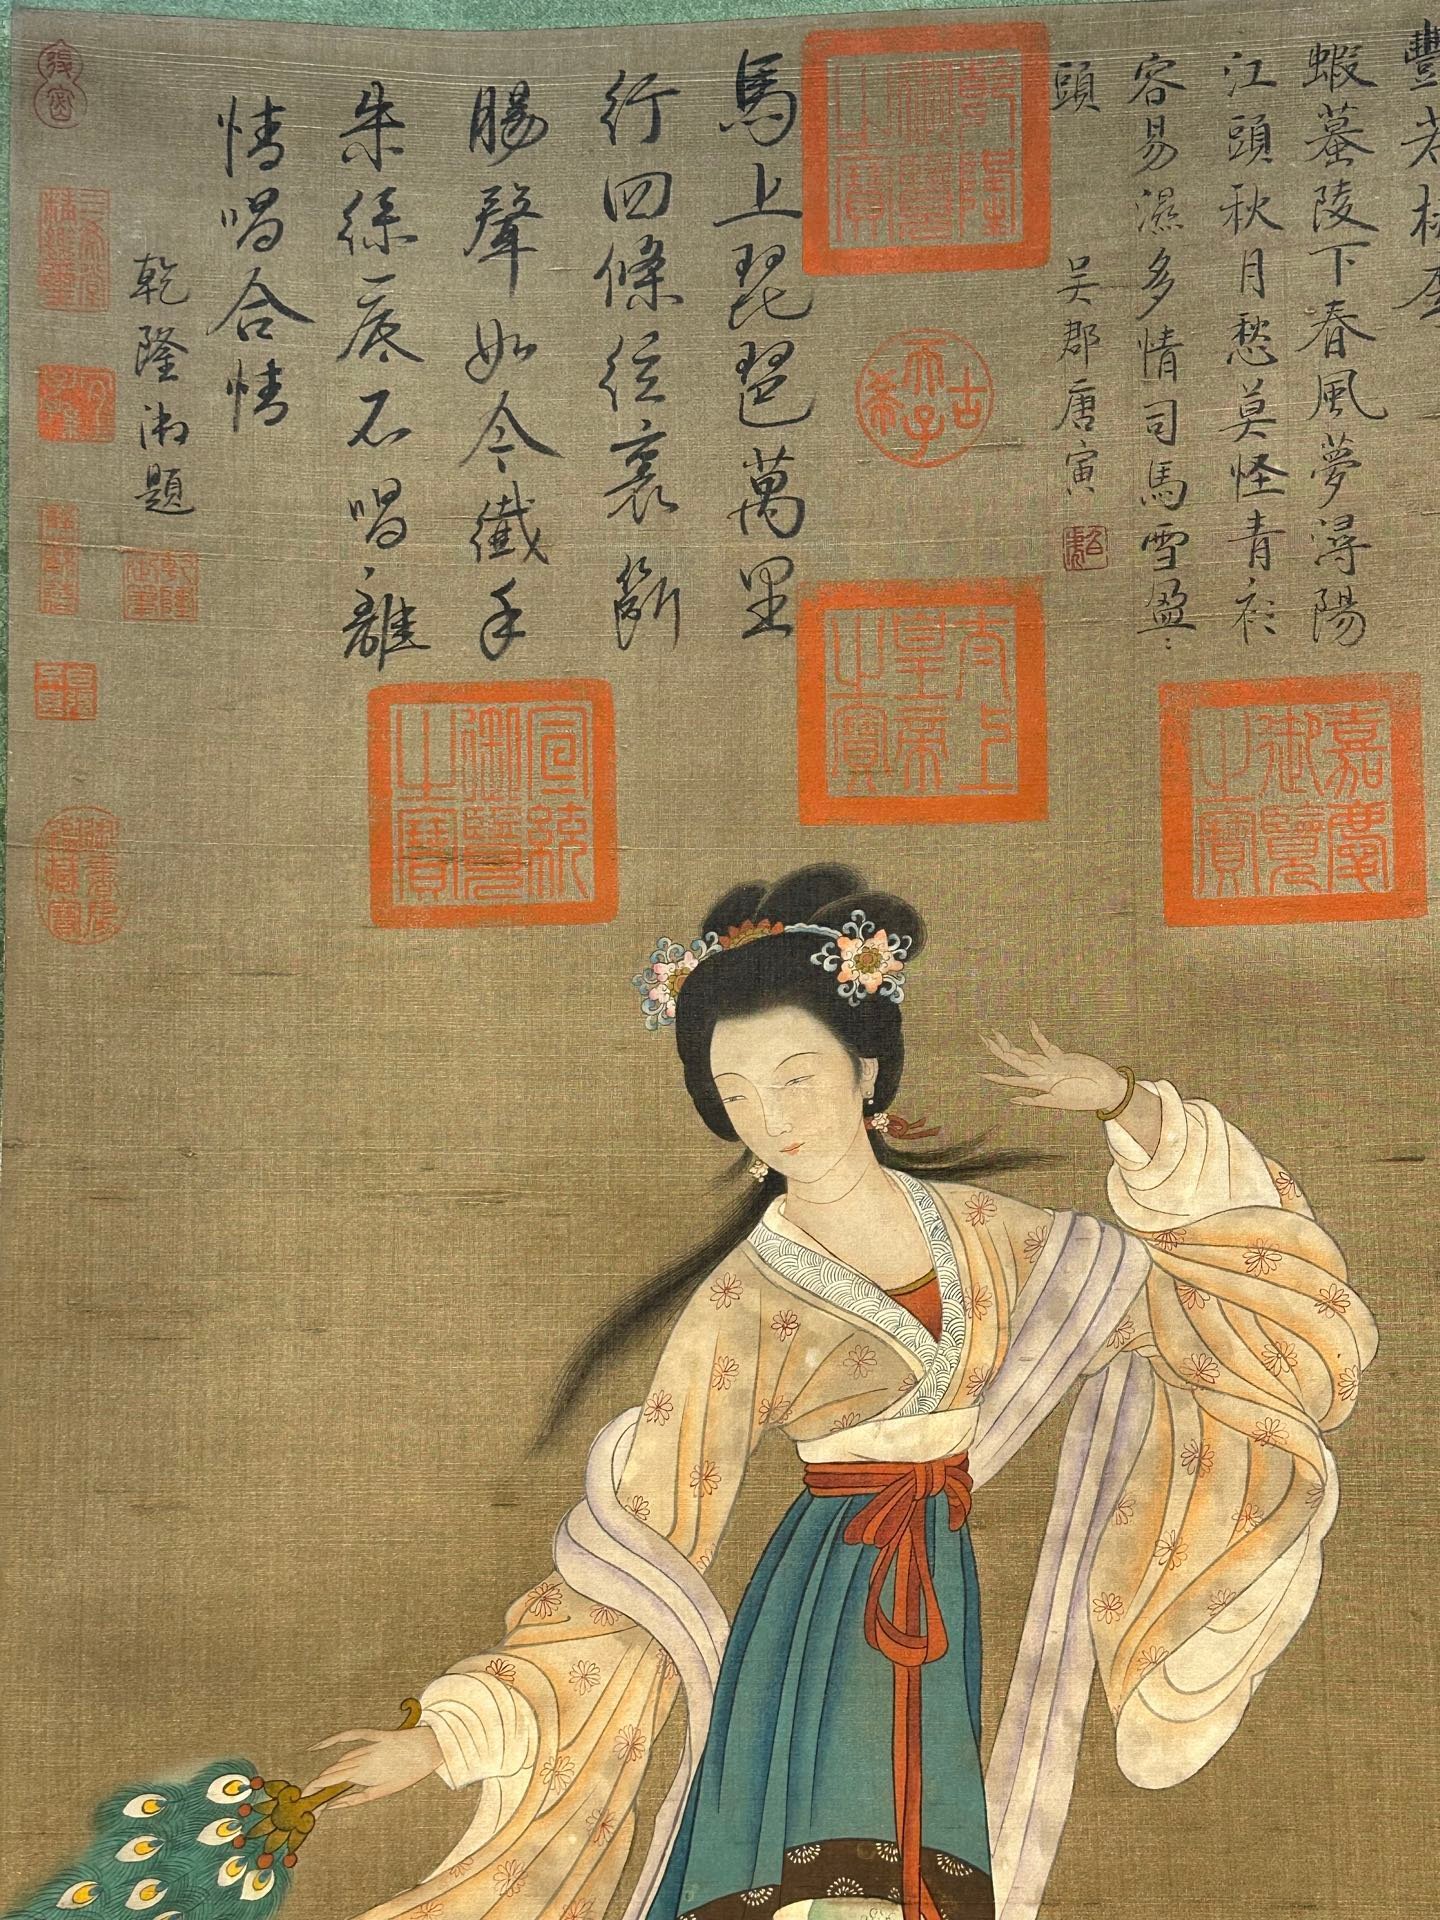 蝦蟇陵下春風夢潯陽
江頭秋月愁莫怪青衫
容易濕多情司馬雪盈〻
頭
吳郡唐寅
馬上琵琶萬里
行四條弦裏斷
腸聲如今纖手
朱絲底不唱離
情唱合情
乾隆御題
乾隆御覽之寶
古希天子
太上皇帝之寶
嘉慶御覽之寶
宣統御覽之寶
乾隆御筆